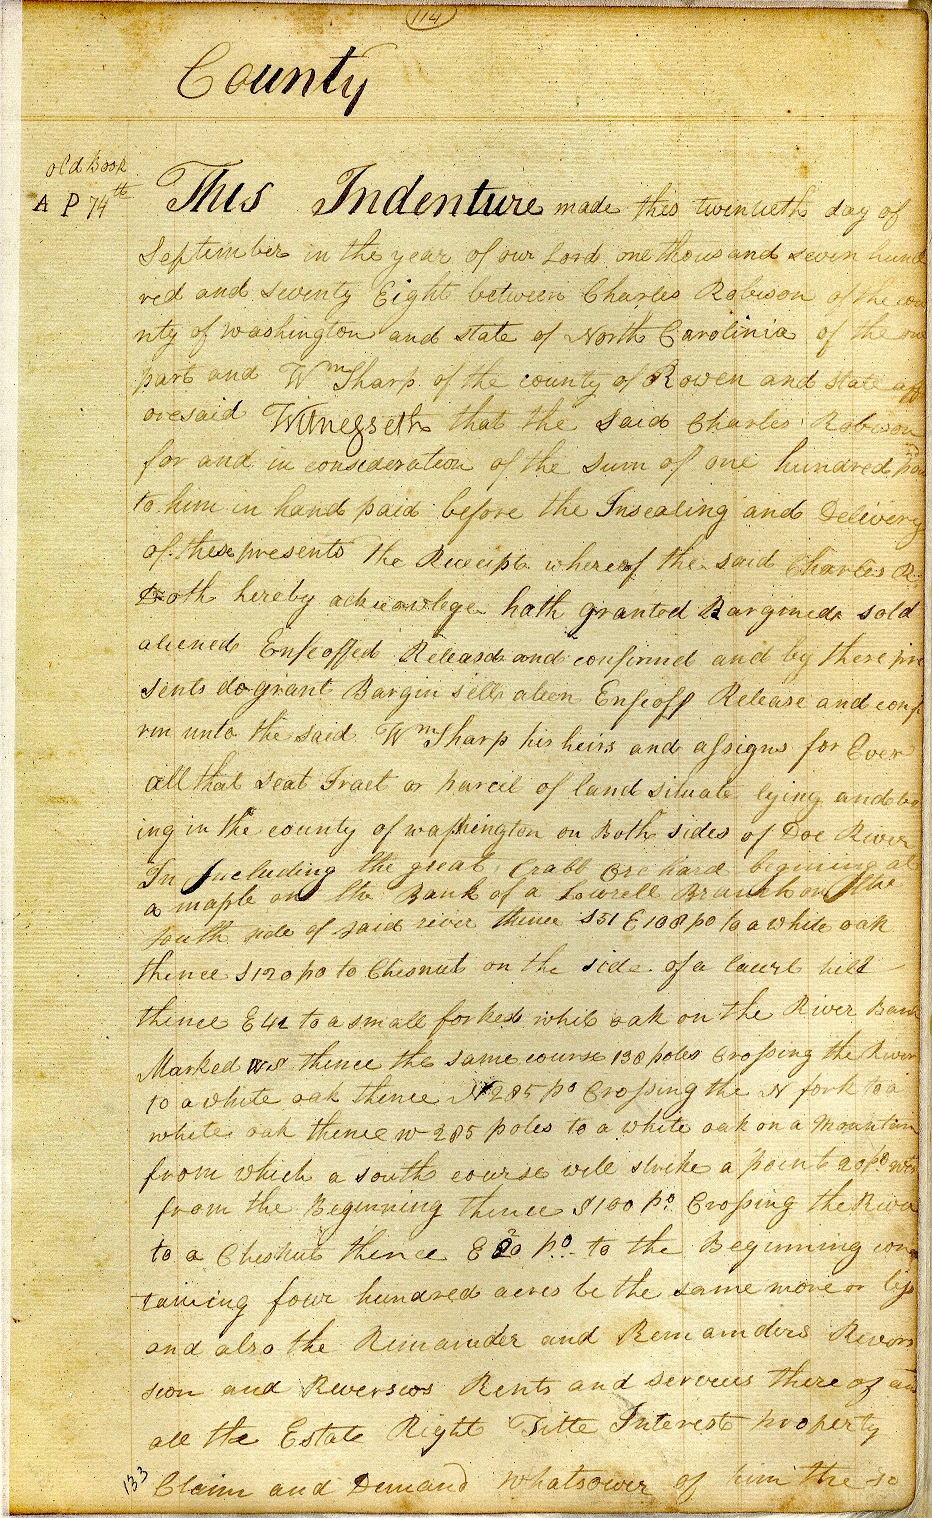 114
County
old Book
A P 74th
This Indenture made this twentieth day of
September in the year of our Lord one thousand seven hund
red and seventy Eight between Charles Robison of the cou
nty of Washington and state of North Carolinia of the one
part and Wm Sharp of the county of Rowen and state aff
oresaid Witnesseth that the said Charles Robison
for and in consideration of the sum of one hundred
to him in hand paid before the Insealing and Delivery
of these presents the Receipt whereof the said Charles R
Doth hereby acknowlege hath granted Bargoned sold
aliened Enfeoffed Released and confirmed and by these pre
sents do grant Bargin sell alien Enfeoff Release and conf
rm unto the said Wm Sharp his heirs and assigns for Ever
all that seat Tract or parcel of land situate lying and be
ing in the county of washington on Both sides of Doe River
In Including the great Crabb Orchard begining at
a maple on the Bank of a Lowrell Branch on the
south side of said river thence S51 E108 po to a white oak
thence S120 po to Chesnut on the side of a laurl hill
thence E42 to a small forked whit oak on the River Bank
Marked WS thence the same course 138 poles Crossing the River
to a white oak thence N 285 po Crossing the N fork to a
white oak thence W 285 poles to a white oak on a Mountain
from which a south course will strike a point 20 po
from the Beginning thence S100 po Crossing the River
to a Chesnut thence E 20 po to the Beginning con
taining four hundred acres be the same more or less
and also the Remainder and Remainders Revers
sion and Reversios Rents and services there of and
all the Estate Right Title Interest property
133 Claim and Demand whatsower of him the sd